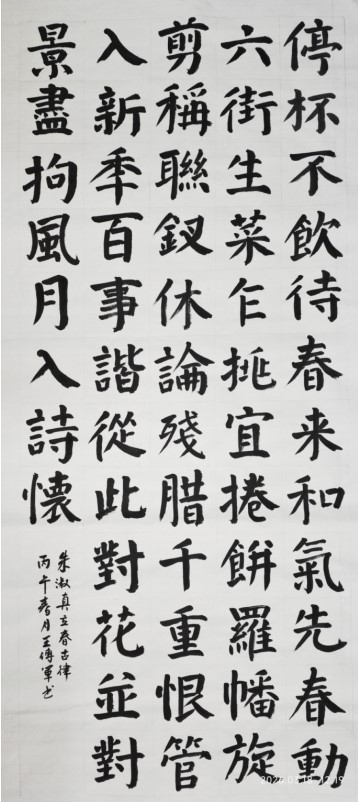 停杯不飲待春来和氣先春動
六街生菜乍挑宜捲餅羅幡旋
剪稱聯釵休論残腊千重恨管
入新年百事諧從此對花並對
景盡拘風月入詩懷
朱淑真立春古律
丙午春月王傳軍书